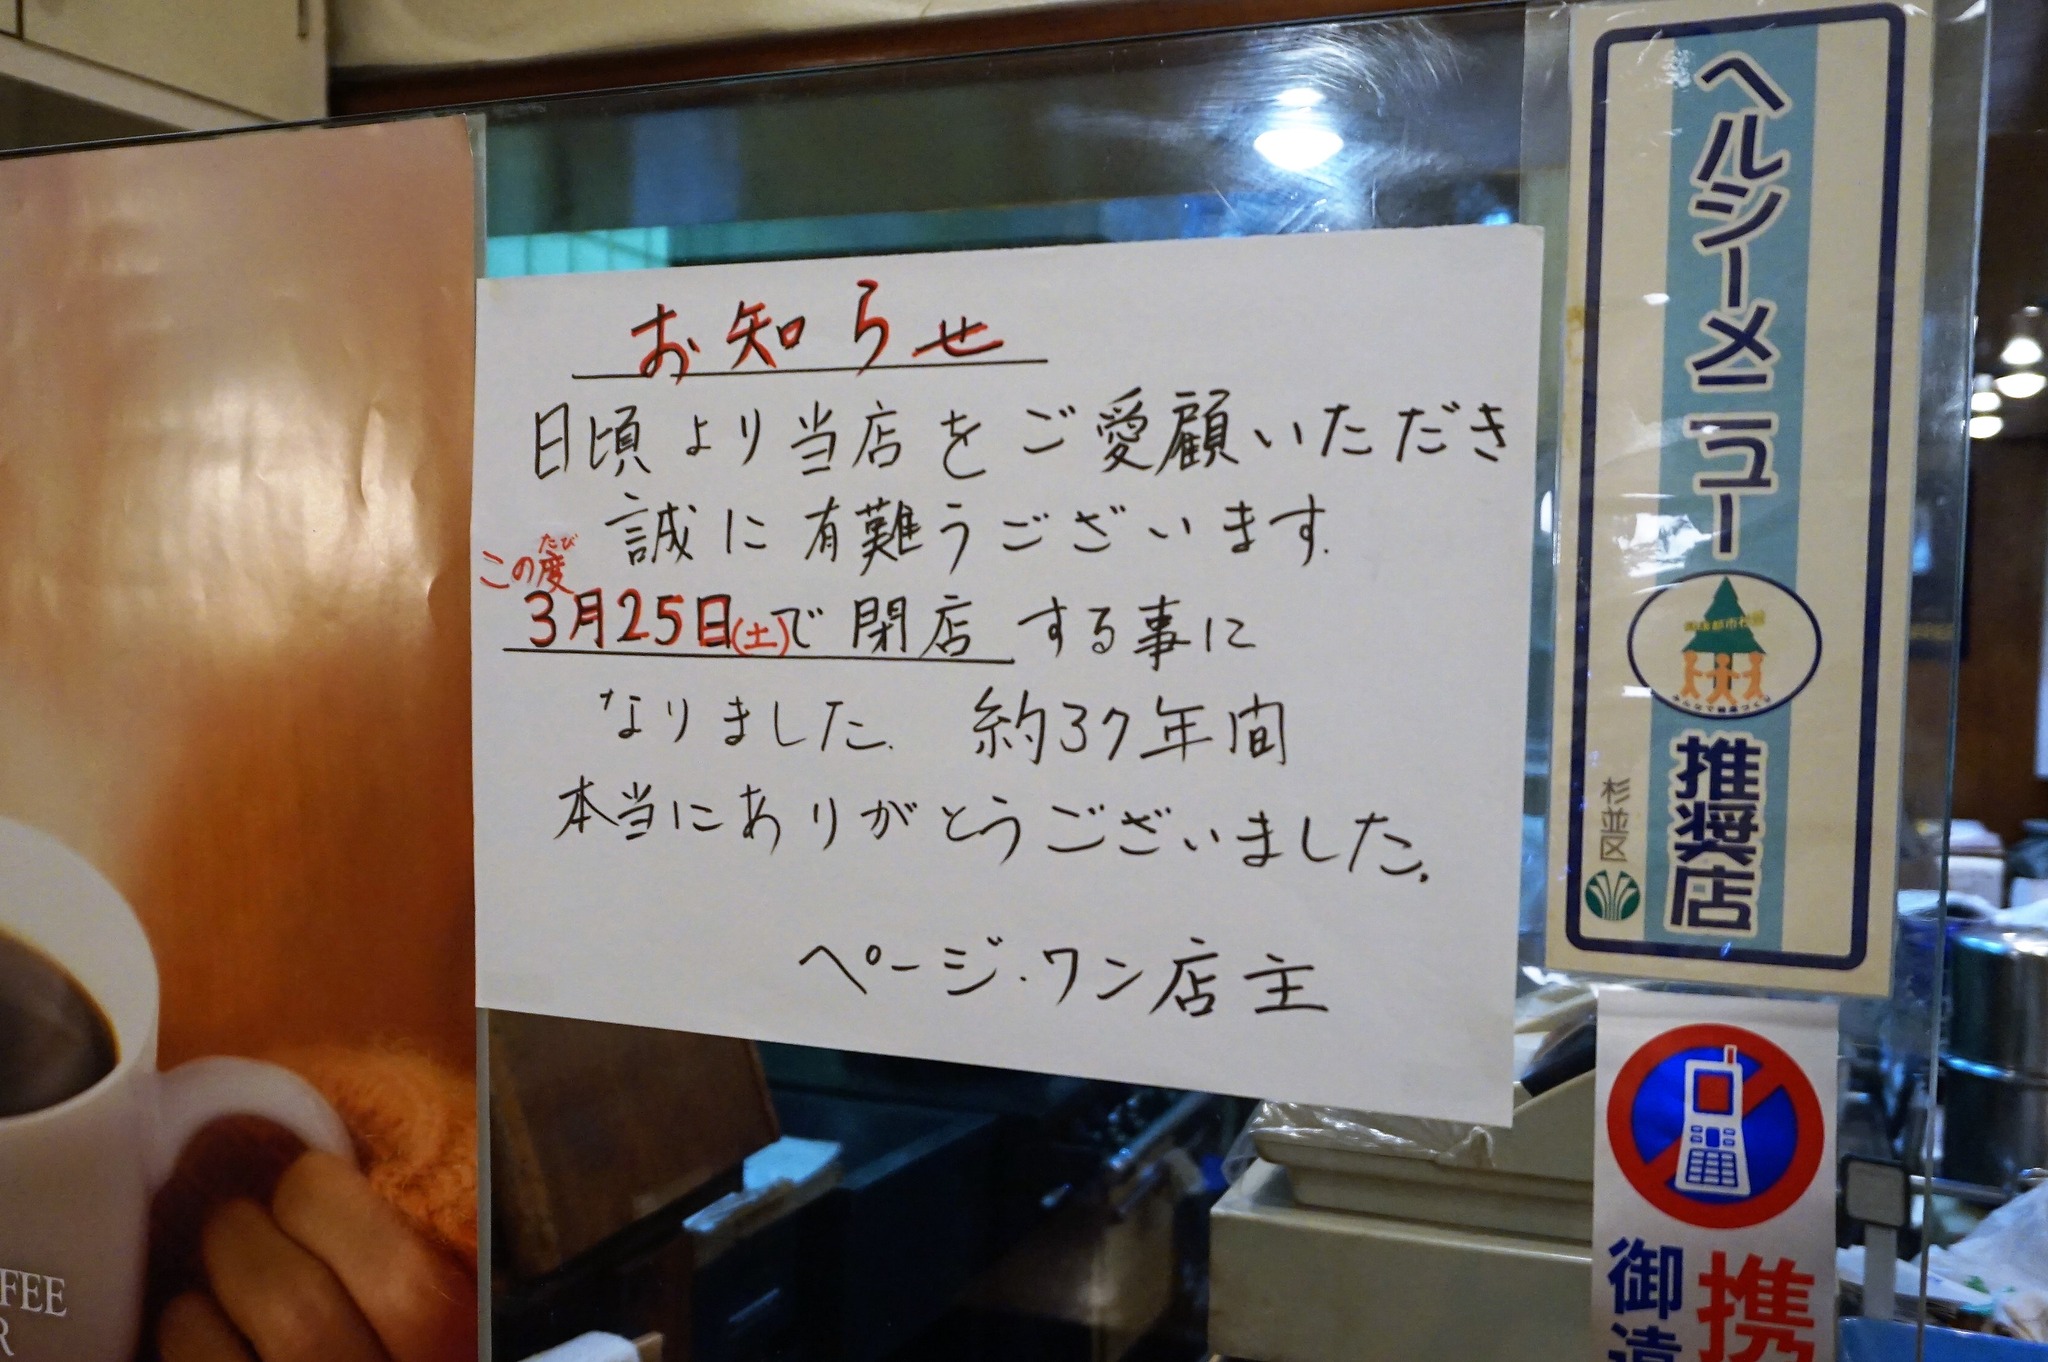 お知らせ
日頃より当店をご愛顧いただき
誠に有難うございます.
たび
この度
3月25日(土)で閉店する事に
なりました. 約37年間
本当にありがとうございました.
ページ・ワン店主
ヘルシーメニュー
みんなで健康づくり
推奨店
杉並区
携
御遠
FEE
R